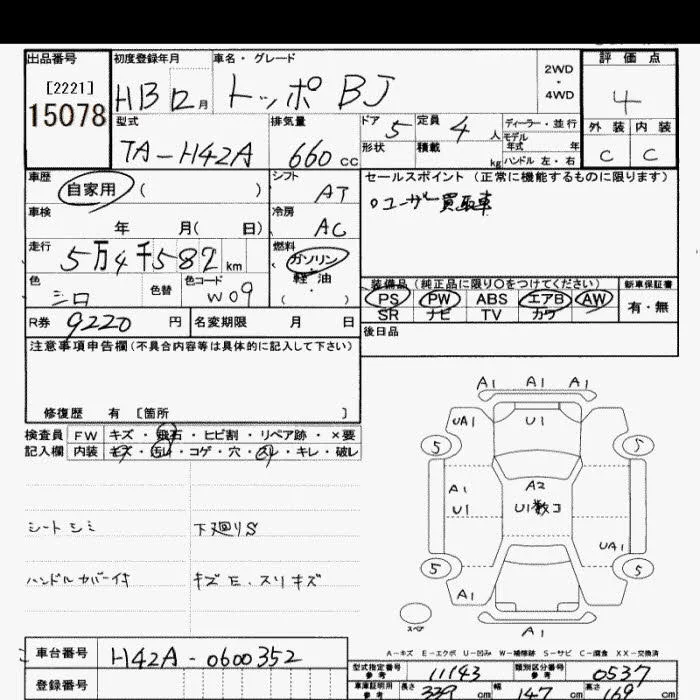 出品番号 初度登録年月 車名・グレード 2WD・4WD 評価点
[2221] 15078 H13 12月 トッポ BJ 4
型式 排気量 ドア 5 定員 4 人 ディーラー・並行 外装 内装
TA-H42A 660 cc 形状 積載 kg モデル年式 年 C C
ハンドル 左・右
車歴 自家用 ( ) シフト AT セールスポイント (正常に機能するものに限ります)
車検 年 月( 日) 冷房 AC ○ユーザー買取車
走行 5万4千582 km 燃料 ガソリン・軽・油 ( )
色 シロ 色替 色コード W09 装備品 (純正品に限り○をつけてください) 新車保証書
PS PW ABS エアB AW 有・無
SR ナビ TV カワ
R券 9220 円 名変期限 月 日 後日品
注意事項申告欄(不具合内容等は具体的に記入して下さい)
修復歴 有 [箇所 ]
検査員 FW キズ・飛石・ヒビ割・リペア跡・×要
記入欄 内装 キズ・汚レ・コゲ・穴・スレ・キレ・破レ
A1 A1 A1
UA1 U1
5 5
A1 A2
U1 U1数コ
UA1
5 5
A1
スペア A1
シートシミ 下廻りS
ハンドルカバー付 キズ E、スリキズ
A-キズ E-エクボ U-凹み W-補修跡 S-サビ C-腐食 XX-交換済
車台番号 H42A-0600352
型式指定番号 参考 11143 類別区分番号 参考 0537
登録番号 車庫証明用 参考 長さ 339 cm 幅 147 cm 高さ 169 cm